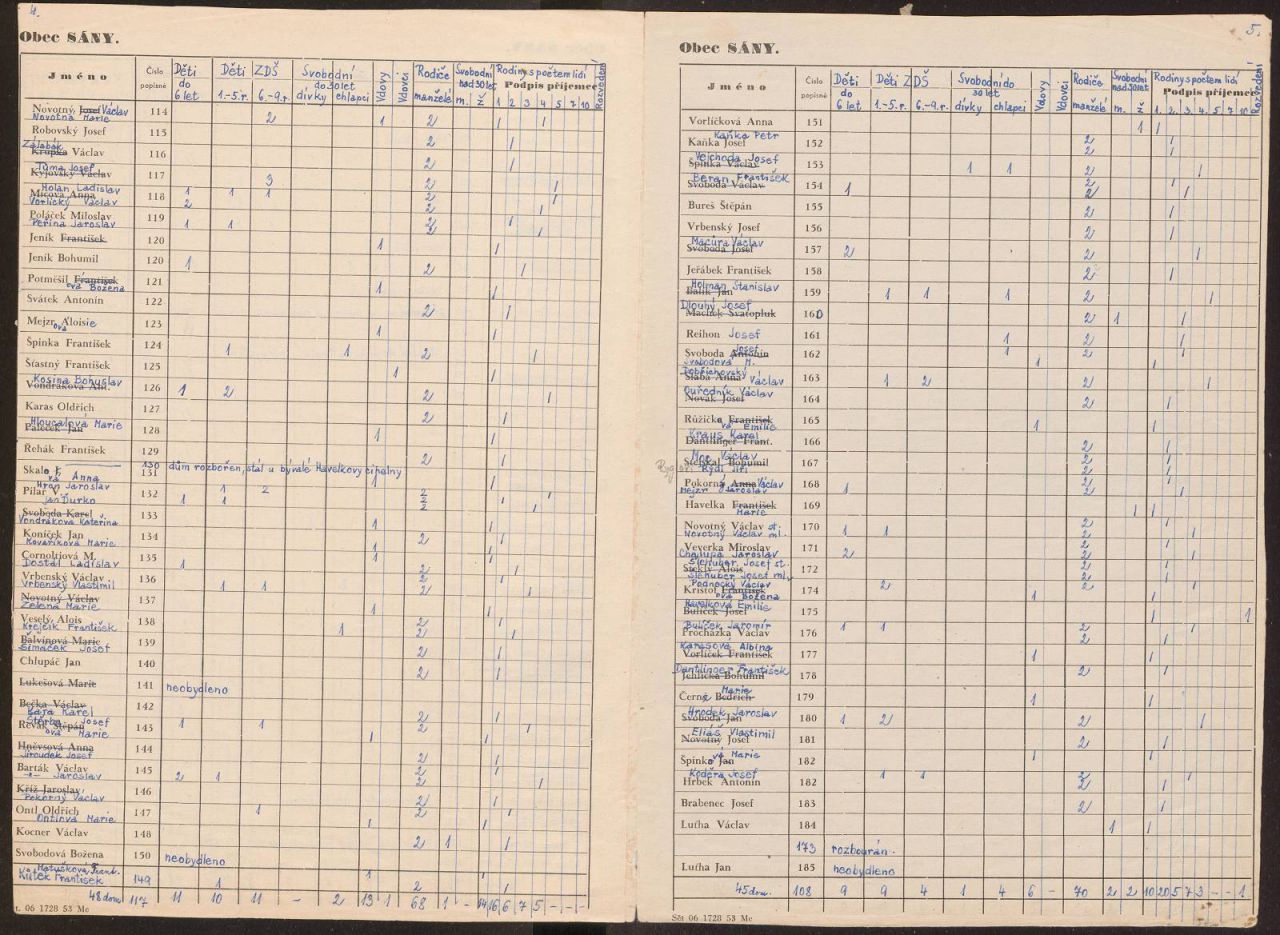 4.
Obec SÁNY.
Jméno Číslo popisné Děti do 6 let Děti ZDŠ 1.-5.r. 6.-9.r. Svobodní do 30 let dívky chlapci Vdovy Vdovci Rodiče manželé Svobodní nad 30 let m. ž. Rodiny s počtem lidí Podpis příjemce 1 2 3 4 5 7 10 Rozvedení
Novotný Josef Václav 114
Novotná Marie 2 1 2 1 1
Robovský Josef 115 2 1
Zálabák
Krupka Václav 116 2 1
Tůma Josef
Kyjovský Václav 117 3 2 1
Holan Ladislav
Micová Anna 118 1 1 1 2 1
Vorlický Václav 2 2 1
Poláček Miloslav 119 2 1
Peřina Jaroslav 1 1 2 1
Jeník František 120 1 1
Jeník Bohumil 120 1 2 1
Potměšil František 121
ová Božena 1 1
Svátek Antonín 122 2 1
Mejzrová Aloisie 123 1 1
Špinka František 124 1 1 2 1
Šťastný František 125 1 1
Kosina Bohuslav
Vondráková Ant. 126 1 2 2 1
Karas Oldřich 127 2 1
Hloucalová Marie
Páleček Jan 128 1 1
Řehák František 129 2 1
130 dům rozbořen, stál u bývalé Havelkovy cihelny
Skala F. 131
vá Anna 1 1
Hron Jaroslav
Pilař V. 132 1 2 2 1
Jan Ďurko 1 1 2 1
Svoboda Karel 133
Vondráková Kateřina 1 1
Koníček Jan 134 2 1
Kovaříková Marie 1 1
Cornoltiová M. 135 1 1
Dostál Ladislav 1 2 1
Vrbenský Václav 136 2 1
Vrbenský Vlastimil 1 1 2 1
Novotný Václav 137
Zelená Marie 1 1
Veselý Alois 138 2 1
Krejčík František 1 2 1
Balvínová Marie 139
Šimáček Josef 2 1
Chlupáč Jan 140 2 1
Lukešová Marie 141 neobydleno
Bečka Václav 142
Bára Karel 2 1
Štěrba Josef 1 1 2 1
Řevák Štěpán 143
ová Marie 1 1
Hněvsová Anna 144
Jiroudek Josef 2 1
Barták Václav 145 2 1
-"- Jaroslav 2 1 2 1
Kříž Jaroslav 146
Pokorný Václav 2 1
Ontl Oldřich 147 1 2 1
Ontlová Marie 1 1
Kocner Václav 148 2 1 1
Svobodová Božena 150 neobydleno
Matušková Frant. 1 1
Kůtek František 149 1 2 1
48 dom. 117 11 10 11 - 2 13 1 68 1 - 14 16 6 7 5 - - -
t. 06 1728 53 Me
5.
Obec SÁNY.
Jméno Číslo popisné Děti do 6 let Děti ZDŠ 1.-5.r. 6.-9.r. Svobodní do 30 let dívky chlapci Vdovy Vdovci Rodiče manželé Svobodní nad 30 let m. ž. Rodiny s počtem lidí Podpis příjemce 1. 2. 3. 4. 5. 7. 10 Rozvedení
Vorlíčková Anna 151 1 1
Kaňka Petr 2 1
Kaňka Josef 152 2 1
Vejchoda Josef
Špinka Václav 153 1 1 2 1
Beran František 2 1
Svoboda Václav 154 1 2 1
Bureš Štěpán 155 2 1
Vrbenský Josef 156 2 1
Macura Václav
Svoboda Josef 157 2 2 1
Jeřábek František 158 2 1
Holman Stanislav
Balík Jan 159 1 1 1 2 1
Dlouhý Josef
Machek Svatopluk 160 2 1 1
Reihon Josef 161 1 2 1
Josef
Svoboda Antonín 162 1 2 1
Svobodová M. 1 1
Dobřichovský
Slabá Anna Václav 163 1 2 2 1
Ouředník Václav
Novák Josef 164 2 1
Růžička František 165
vá Emilie 1 1
Kraus Karel
Dantlinger Frant. 166 2 1
Moc Václav 2 1
Stejskal Bohumil 167
Rýdl Jiří 2 1
Pokorná Anna Václav 168 2 1
Mejzr Jaroslav 1 2 1
Havelka František 169
Marie 1 1
Novotný Václav st. 170 2 1
Novotný Václav ml. 1 1 2 1
Veverka Miroslav 171 2 1
Chalupa Jaroslav 2 2 1
Slehuber Josef st. 2 1
Steklý Alois 172
Slehuber Josef ml. 2 1
Podnecký Václav 2 2 1
Kristol František 174
ová Božena 1 1
Havelková Emilie
Bulíček Josef 175 1 1
Bulíček Jaromír 1 1 2 1
Procházka Václav 176 2 1
Karasová Albina
Vorlíček František 177 1 1
Dantlinger František
Jehlička Bohumil 178 2 1
Marie
Černá Bedřich 179 1 1
Hrodek Jaroslav
Svoboda Jan 180 1 2 2 1
Eliáš Vlastimil
Novotný Josef 181 2 1
vá Marie
Špinka Jan 182 1 1 1
Koděra Josef 1 1 2 1
Hrbek Antonín 182 2 1
Brabenec Josef 183 2 1
Luťha Václav 184 1 1
173 rozbourán.
Luťha Jan 185 neobydleno
45 dom. 108 9 9 4 1 4 6 - 70 2 2 10 20 5 7 3 - - 1
Sčt 06 1728 53 Me